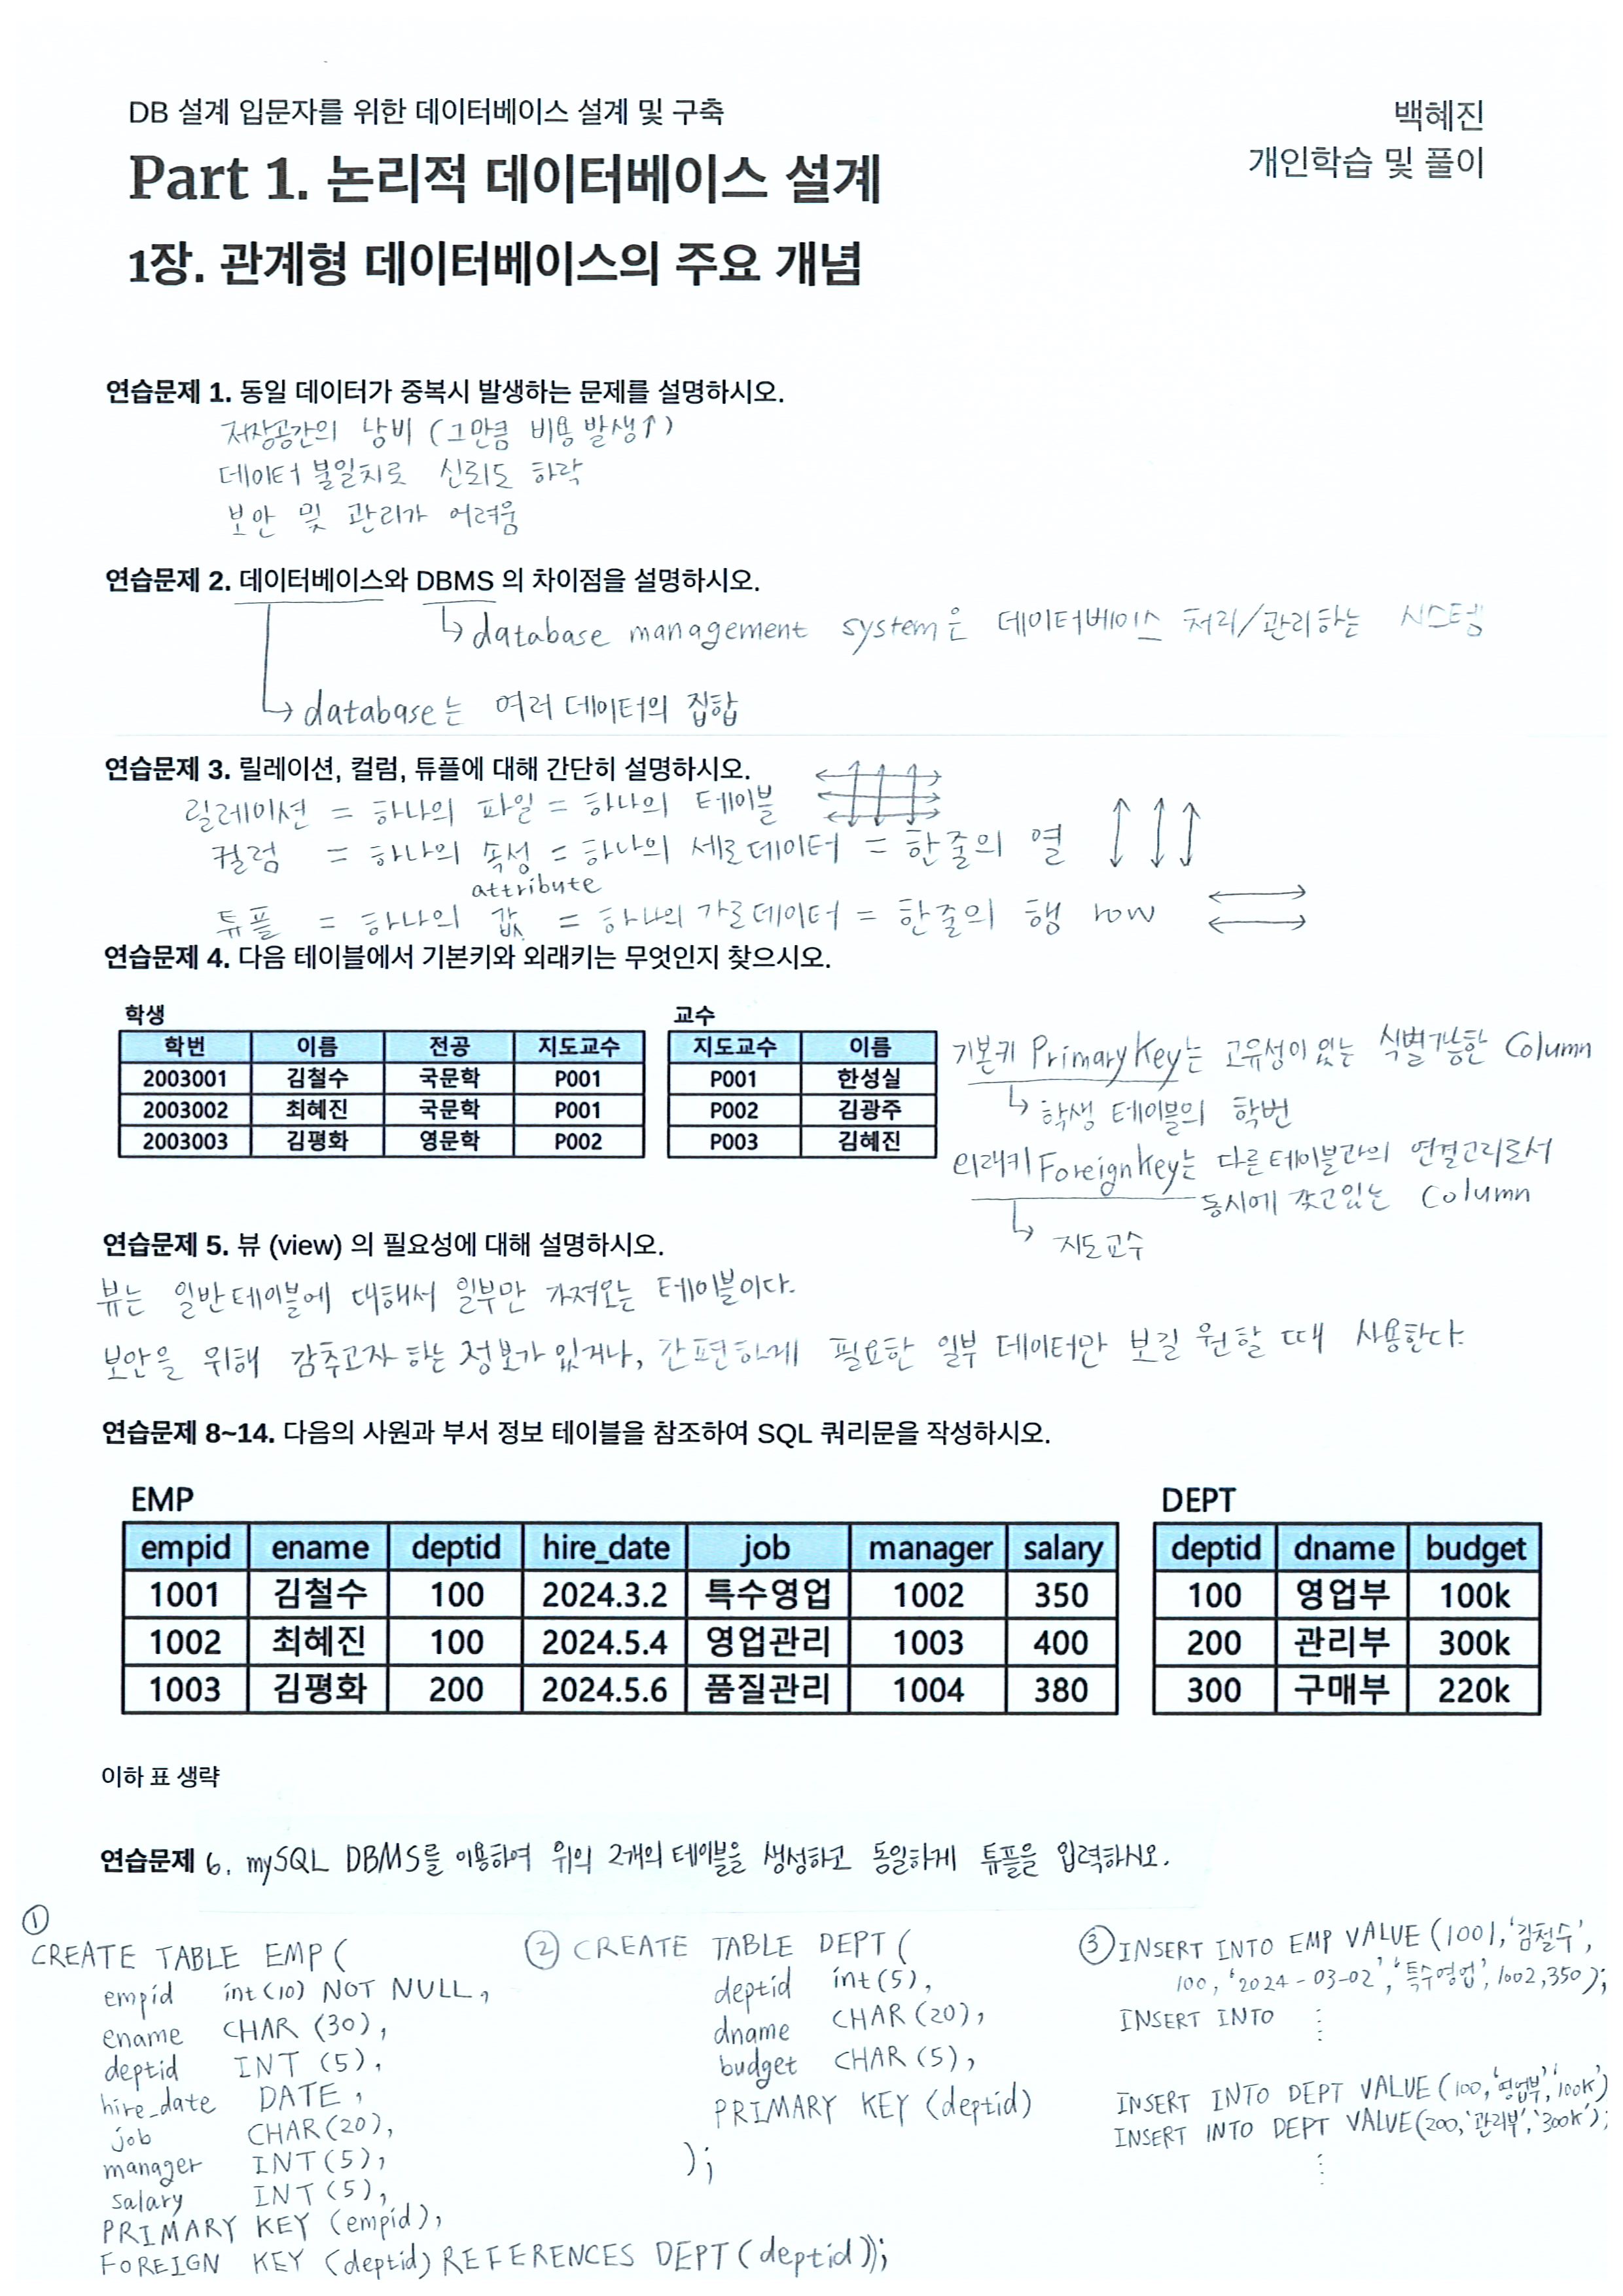 DB 설계 입문자를 위한 데이터베이스 설계 및 구축
백혜진
Part 1. 논리적 데이터베이스 설계
개인학습 및 풀이
1장. 관계형 데이터베이스의 주요 개념
연습문제 1. 동일 데이터가 중복시 발생하는 문제를 설명하시오.
저장공간의 낭비 (그만큼 비용 발생↑)
데이터 불일치로 신뢰도 하락
보안 및 관리가 어려움
연습문제 2. 데이터베이스와 DBMS 의 차이점을 설명하시오.
↳ database management system은 데이터베이스 처리/관리하는 시스템
↳ database는 여러 데이터의 집합
연습문제 3. 릴레이션, 컬럼, 튜플에 대해 간단히 설명하시오.
릴레이션 = 하나의 파일 = 하나의 테이블
컬럼 = 하나의 속성 = 하나의 세로데이터 = 한줄의 열
attribute
튜플 = 하나의 값 = 하나의 가로데이터 = 한줄의 행 row
연습문제 4. 다음 테이블에서 기본키와 외래키는 무엇인지 찾으시오.
학생
학번 이름 전공 지도교수
2003001 김철수 국문학 P001
2003002 최혜진 국문학 P001
2003003 김평화 영문학 P002
교수
지도교수 이름
P001 한성실
P002 김광주
P003 김혜진
기본키 Primary Key는 고유성이 있는 식별가능한 Column
↳ 학생 테이블의 학번
외래키 Foreign Key는 다른테이블과의 연결고리로서
동시에 갖고있는 Column
↳ 지도교수
연습문제 5. 뷰 (view) 의 필요성에 대해 설명하시오.
뷰는 일반테이블에 대해서 일부만 가져오는 테이블이다.
보안을 위해 감추고자 하는 정보가 있거나, 간편하게 필요한 일부 데이터만 보길 원할 때 사용한다.
연습문제 8~14. 다음의 사원과 부서 정보 테이블을 참조하여 SQL 쿼리문을 작성하시오.
EMP
empid ename deptid hire_date job manager salary
1001 김철수 100 2024.3.2 특수영업 1002 350
1002 최혜진 100 2024.5.4 영업관리 1003 400
1003 김평화 200 2024.5.6 품질관리 1004 380
DEPT
deptid dname budget
100 영업부 100k
200 관리부 300k
300 구매부 220k
이하 표 생략
연습문제 6. mySQL DBMS를 이용하여 위의 2개의 테이블을 생성하고 동일하게 튜플을 입력하시오.
①
CREATE TABLE EMP (
empid int (10) NOT NULL,
ename CHAR (30),
deptid INT (5),
hire_date DATE,
job CHAR (20),
manager INT (5),
salary INT (5),
PRIMARY KEY (empid),
FOREIGN KEY (deptid) REFERENCES DEPT (deptid));
② CREATE TABLE DEPT (
deptid int (5),
dname CHAR (20),
budget CHAR (5),
PRIMARY KEY (deptid)
);
③ INSERT INTO EMP VALUE (1001, '김철수',
100, '2024-03-02', '특수영업', 1002, 350);
INSERT INTO ⋮
INSERT INTO DEPT VALUE (100, '영업부', '100K')
INSERT INTO DEPT VALUE (200, '관리부', '300K');
⋮